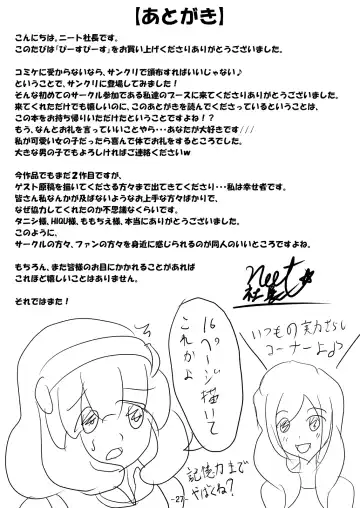 【あとがき】
こんにちは。ニート社長です。
このたびは「ぴーすぴーす」をお買い上げくださりありがとうございました。
コミケに受からないなら、サンクリで頒布すればいいじゃない♪
ということで、サンクリに登場してみました！
そんな初めてのサークル参加である私達のブースに来てくださりありがとうございました。
来てくれただけでも嬉しいのに、このあとがきを読んでくださっているということは、
この本をお持ち帰りいただけたということですよね！？
もう、なんとお礼を言っていいことやら・・・あなたが大好きです///
私が可愛い女の子だったら喜んで体でお礼をするところでした。
大きな男の子でもよろしければご連絡くださいw
今作品でもまだ２作目ですが、
ゲスト原稿を描いてくださる方々まで出てきてくださり・・・私は幸せ者です。
皆さん私なんかが及ばないようなお上手な方々ばかりで、
なぜ協力してくれたのか不思議なくらいです。
タニシ様、HIQU様、ももちえ様、本当にありがとうございました。
このように、
サークルの方々、ファンの方々を身近に感じられるのが同人のいいところですよね。
もちろん、また皆様のお目にかかれることがあれば
これほど嬉しいことはありません。
それではまた！
neet
社長
16ページ描いて
これかよ
いつもの実力さらし
コーナーよよ♪
記憶力まで
やばくね？
-27-